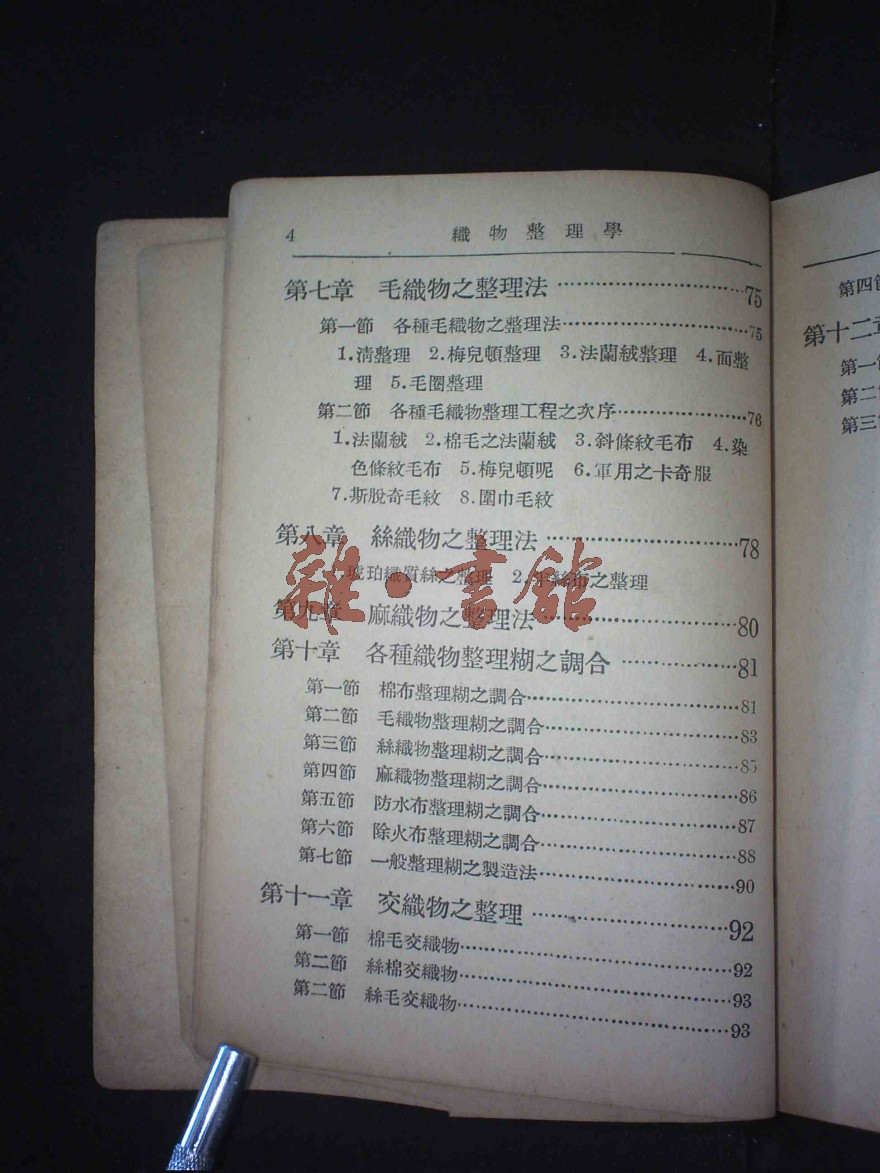 4 織物整理學
第七章 毛織物之整理法……………………75
第一節 各種毛織物之整理法……………………75
1.清整理 2.梅兒頓整理 3.法蘭絨整理 4.面整
理 5.毛圈整理
第二節 各種毛織物整理工程之次序……………………76
1.法蘭絨 2.棉毛之法蘭絨 3.斜條紋毛布 4.染
色條紋毛布 5.梅兒頓呢 6.軍用之卡奇服
7.斯脫奇毛紋 8.圍巾毛紋
第八章 絲織物之整理法……………………78
琥珀織質絲之整理 2.絲布之整理
第九章 麻織物之整理法……………………80
第十章 各種織物整理糊之調合……………………81
第一節 棉布整理糊之調合……………………81
第二節 毛織物整理糊之調合……………………83
第三節 絲織物整理糊之調合……………………85
第四節 麻織物整理糊之調合……………………86
第五節 防水布整理糊之調合……………………87
第六節 除火布整理糊之調合……………………88
第七節 一般整理糊之製造法……………………90
第十一章 交織物之整理……………………92
第一節 棉毛交織物……………………92
第二節 絲棉交織物……………………93
第二節 絲毛交織物……………………93
雜·書館
第四節
第十二章
第一節
第二
第三